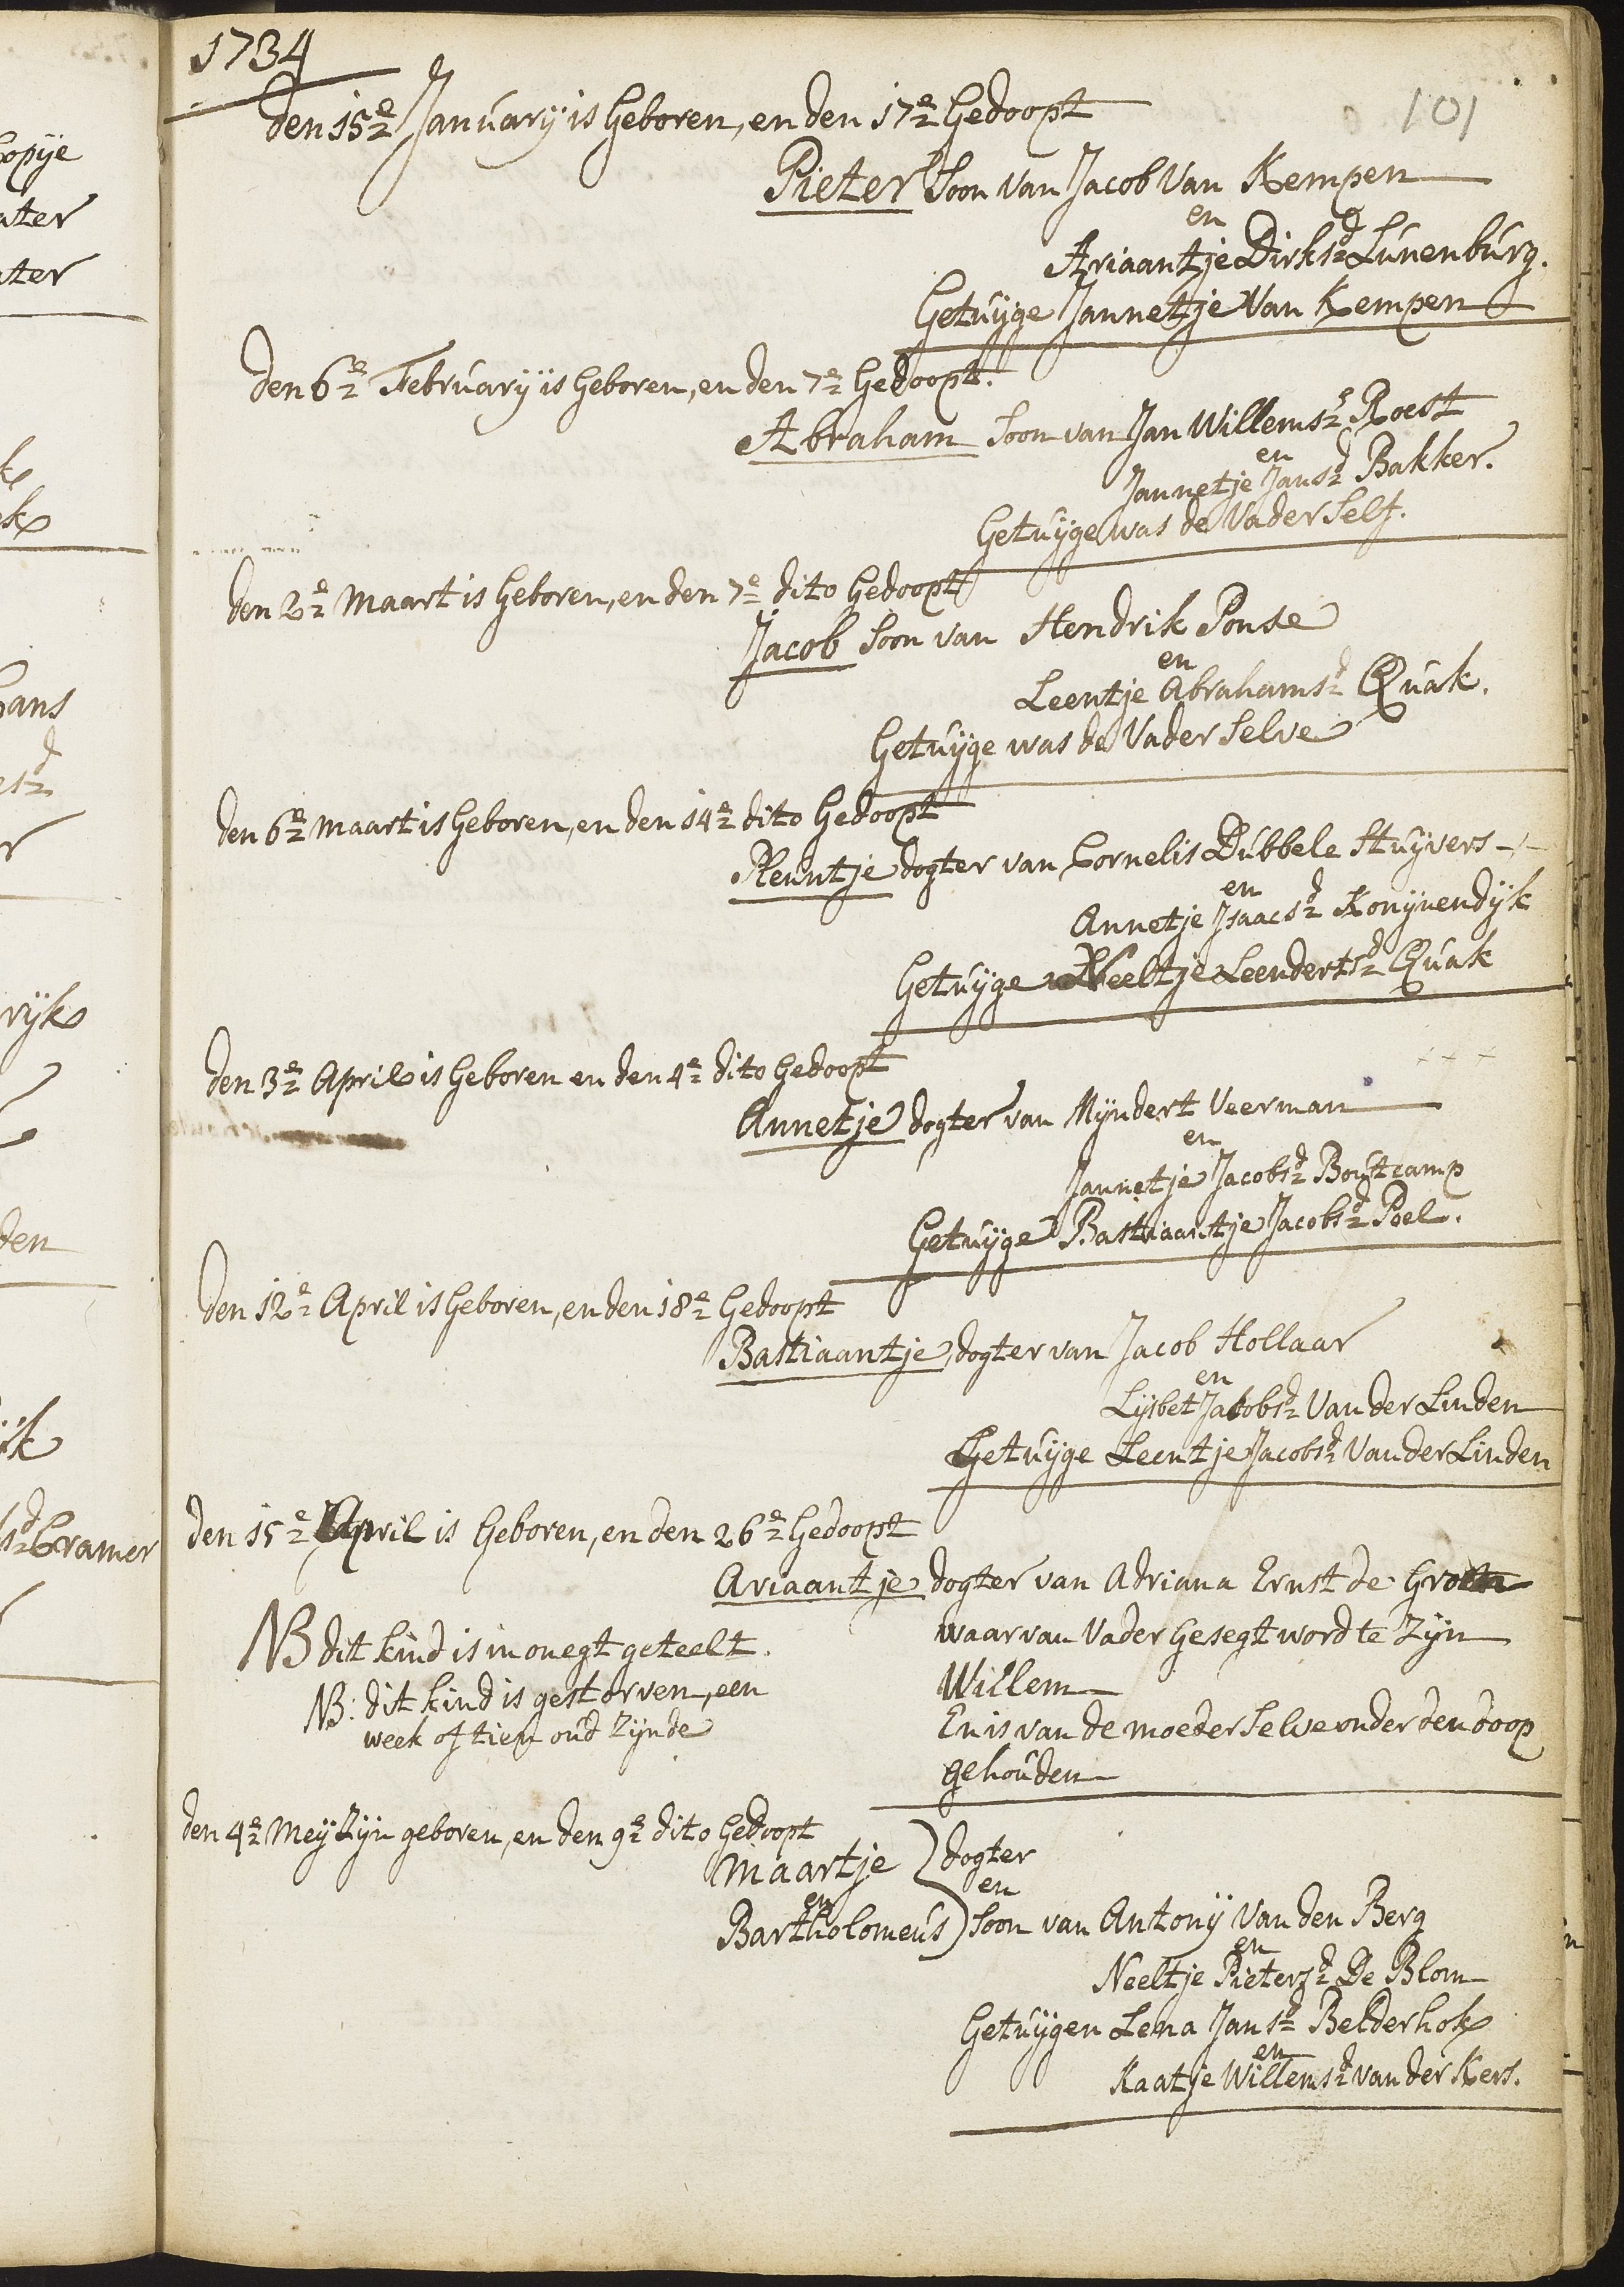 1734
101
den 15e Januarij is Geboren, en den 17e Gedoopt
Pieter Soon van Jacob Van Kempen
en
Ariaantje Dirksd Lunenburg.
Getuijge Jannetje Van Kempen
den 6e Februarij is Geboren, en den 7e Gedoopt.
Abraham Soon van Jan Willemse Roest
en
Jannetje Jansd Bakker.
Getuijge was de Vader Self.
den 2e Maart is Geboren, en den 7e dito Gedoopt
Jacob Soon van Hendrik Ponse
en
Leentje Abrahamsd Quak.
Getuijge was de Vader Selve
den 6e Maart is Geboren, en den 14e dito Gedoopt
Pleuntje dogter van Cornelis Dubbele Stuijvers
en
Annetje Isaacsd Konijnendijk
Getuijge Neeltje Leendertsd Quak
den 3e April is Geboren en den 4e dito Gedoopt
Annetje dogter van Mijndert Veerman
en
Jannetje Jacobsd Boutcamp
Getuijge Bastiaantje Jacobsd Poel.
den 12e April is Geboren, en den 18e Gedoopt
Bastiaantje, dogter van Jacob Hollaar
en
Lijsbet Jacobsd Van der Linden
Getuijge Leentje Jacobsd Van der Linden
den 15e April is Geboren, en den 26e Gedoopt
Ariaantje dogter van Adriana Ernst de
waar van Vader Gesegt word te Zijn
Willem
En is van de moeder Selve onder den doop
gehouden
NB dit kind is in onegt geteelt.
NB: dit kind is gestorven, een
week of tien oud Zijnde
den 4e Meij Zijn geboren, en den 9e dito Gedoopt
Maartje dogter
en en
Bartholomeus Soon van Antonij Van den Berg
en
Neeltje Pietersd De Blom
Getuijgen Lena Jansd Belderhok
en
Kaatje Willemsd van der Kers.
opije
ater
ater
k
ek
ans
esd
r
rijk
den
ijk
sd Cramer